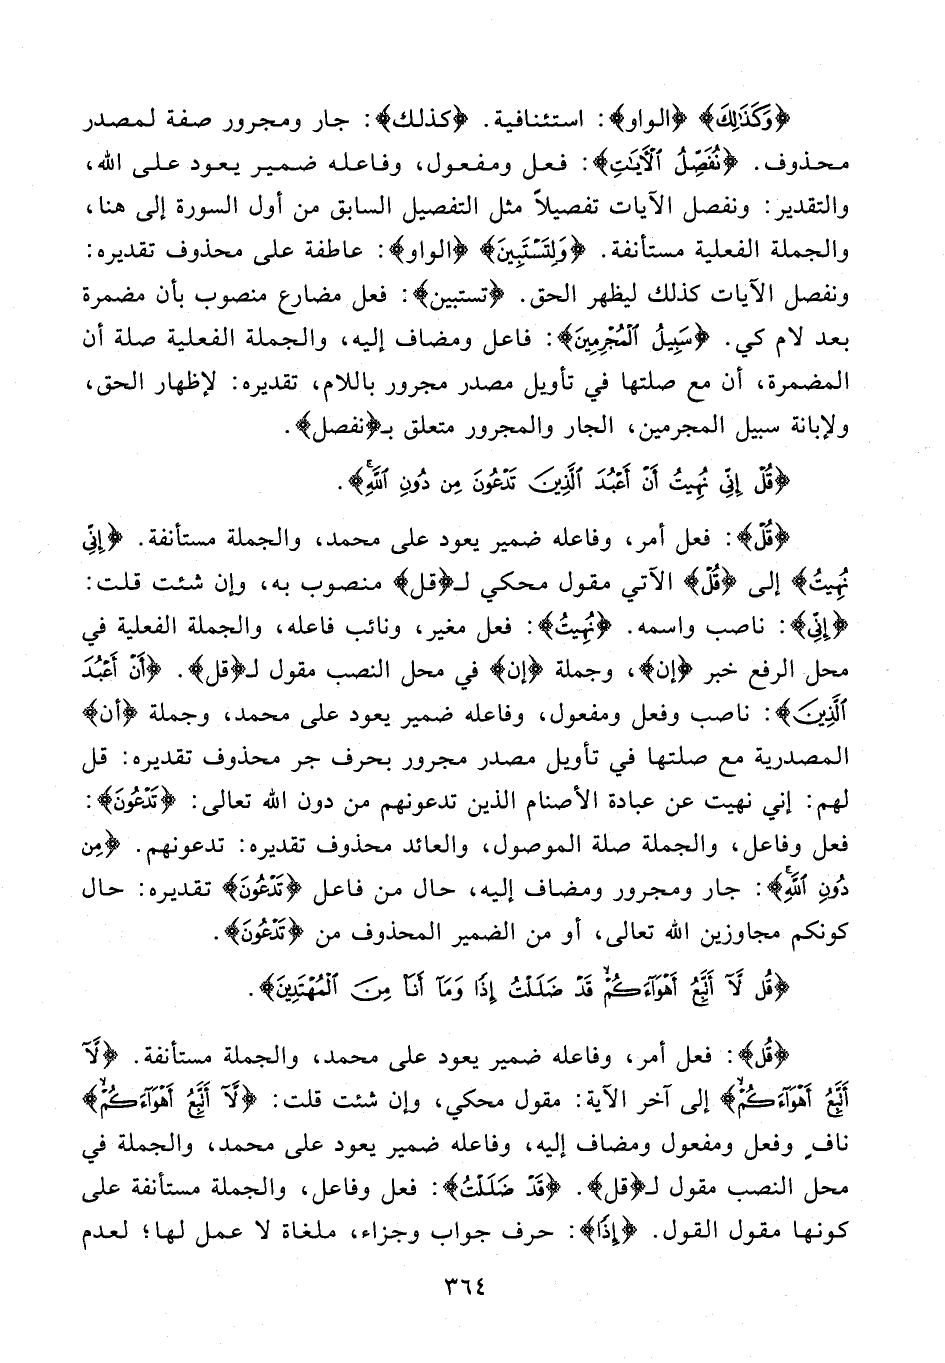 ﴿وَكَذَٰلِكَ﴾ ﴿الواو﴾: استئنافية. ﴿كذلك﴾: جار ومجرور صفة لمصدر
محذوف. ﴿نُفَصِّلُ ٱلْآيَٰتِ﴾: فعل ومفعول، وفاعله ضمير يعود على الله،
والتقدير: ونفصل الآيات تفصيلاً مثل التفصيل السابق من أول السورة إلى هنا،
والجملة الفعلية مستأنفة. ﴿وَلِتَسْتَبِينَ﴾ ﴿الواو﴾: عاطفة على محذوف تقديره:
ونفصل الآيات كذلك ليظهر الحق. ﴿تستبين﴾: فعل مضارع منصوب بأن مضمرة
بعد لام كي. ﴿سَبِيلُ ٱلْمُجْرِمِينَ﴾: فاعل ومضاف إليه، والجملة الفعلية صلة أن
المضمرة، أن مع صلتها في تأويل مصدر مجرور باللام، تقديره: لإظهار الحق،
ولإبانة سبيل المجرمين، الجار والمجرور متعلق بـ﴿نفصل﴾.
﴿قُلْ إِنِّي نُهِيتُ أَنْ أَعْبُدَ ٱلَّذِينَ تَدْعُونَ مِن دُونِ ٱللَّهِ﴾.
﴿قُلْ﴾: فعل أمر، وفاعله ضمير يعود على محمد، والجملة مستأنفة. ﴿إِنِّي
نُهِيتُ﴾ إلى ﴿قُلْ﴾ الآتي مقول محكي لـ﴿قل﴾ منصوب به، وإن شئت قلت:
﴿إِنِّي﴾: ناصب واسمه. ﴿نُهِيتُ﴾: فعل مغير، ونائب فاعله، والجملة الفعلية في
محل الرفع خبر ﴿إن﴾، وجملة ﴿إن﴾ في محل النصب مقول لـ﴿قل﴾. ﴿أَنْ أَعْبُدَ
ٱلَّذِينَ﴾: ناصب وفعل ومفعول، وفاعله ضمير يعود على محمد، وجملة ﴿أن﴾
المصدرية مع صلتها في تأويل مصدر مجرور بحرف جر محذوف تقديره: قل
لهم: إني نهيت عن عبادة الأصنام الذين تدعونهم من دون الله تعالى: ﴿تَدْعُونَ﴾:
فعل وفاعل، والجملة صلة الموصول، والعائد محذوف تقديره: تدعونهم. ﴿مِن
دُونِ ٱللَّهِ﴾: جار ومجرور ومضاف إليه، حال من فاعل ﴿تَدْعُونَ﴾ تقديره: حال
كونكم مجاوزين الله تعالى، أو من الضمير المحذوف من ﴿تَدْعُونَ﴾.
﴿قُل لَّآ أَتَّبِعُ أَهْوَآءَكُمْ قَدْ ضَلَلْتُ إِذًا وَمَآ أَنَا۠ مِنَ ٱلْمُهْتَدِينَ﴾.
﴿قُل﴾: فعل أمر، وفاعله ضمير يعود على محمد، والجملة مستأنفة. ﴿لَّآ
أَتَّبِعُ أَهْوَآءَكُمْ﴾ إلى آخر الآية: مقول محكي، وإن شئت قلت: ﴿لَّآ أَتَّبِعُ أَهْوَآءَكُمْ﴾
نافٍ وفعل ومفعول ومضاف إليه، وفاعله ضمير يعود على محمد، والجملة في
محل النصب مقول لـ﴿قل﴾. ﴿قَدْ ضَلَلْتُ﴾: فعل وفاعل، والجملة مستأنفة على
كونها مقول القول. ﴿إِذًا﴾: حرف جواب وجزاء، ملغاة لا عمل لها؛ لعدم
٣٦٤